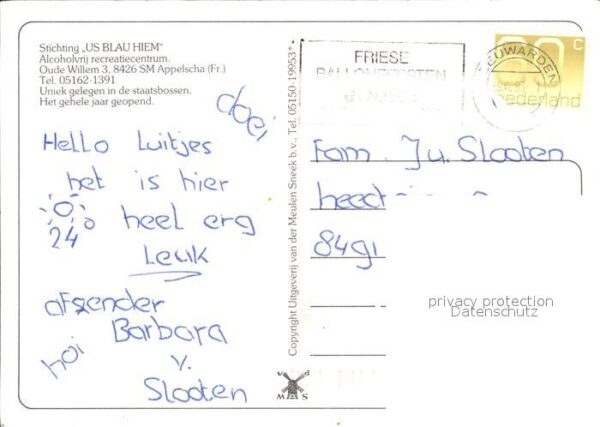 Stichting „US BLAU HIEM"
Alcoholvrij recreatiecentrum.
Oude Willem 3, 8426 SM Appelscha (Fr.)
Tel. 05162-1391
Uniek gelegen in de staatsbossen.
Het gehele jaar geopend.
doei
Hello Luitjes
het is hier
heel erg
24°
Leuk
afzender
Barbara
hoi
v.
Slooten
Copyright Uitgeverij van der Meulen Sneek b.v., Tel. 05150-19953*
v d
M A S
FRIESE
BALLONFEESTEN
JOURE
LEEUWARDEN
60 c
nederland
Fam. J v. Slooten
heect
8491
privacy protection
Datenschutz